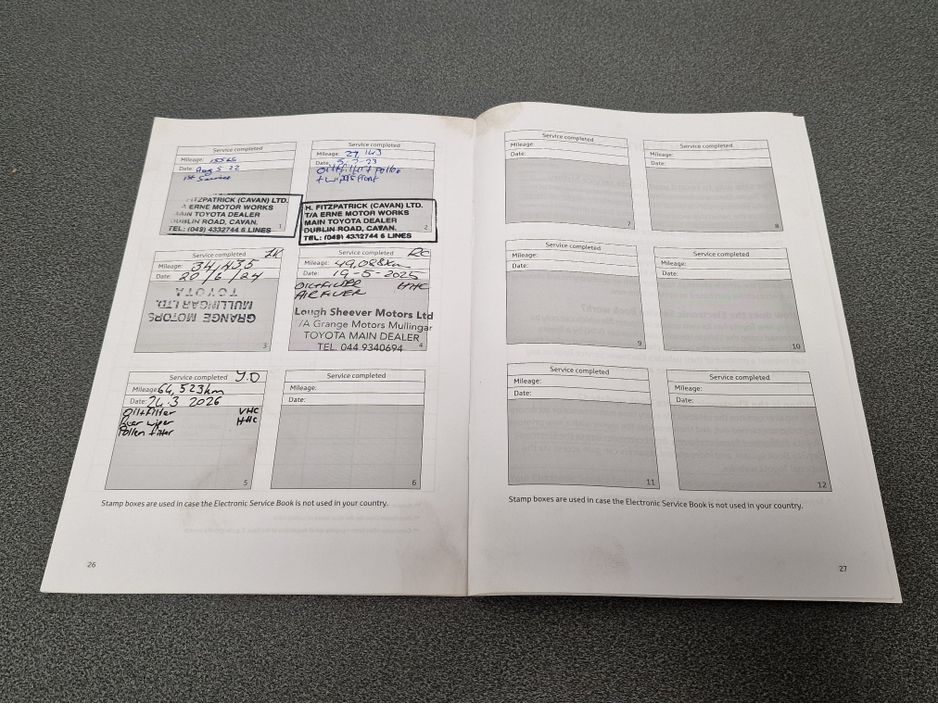 Service completed
Mileage: 15565
Date: Aug 5 22
1st Service
1
H. FITZPATRICK (CAVAN) LTD.
T/A ERNE MOTOR WORKS
MAIN TOYOTA DEALER
DUBLIN ROAD, CAVAN.
TEL: (049) 4332744 6 LINES
Service completed
Mileage: 29 143
Date: 5-7-23
Oil+filter+Pollen
2
H. FITZPATRICK (CAVAN) LTD.
T/A ERNE MOTOR WORKS
MAIN TOYOTA DEALER
DUBLIN ROAD, CAVAN.
TEL: (049) 4332744 6 LINES
Service completed
Mileage: 34,435
Date: 20/6/24
GRANGE MOTORS
MULLINGAR LTD.
TOYOTA
3
Service completed RC
Mileage: 49,028km
Date: 19-5-2025
OIL+FILTER HHC
AIR FILTER
Lough Sheever Motors Ltd
/A Grange Motors Mullingar
TOYOTA MAIN DEALER
TEL. 044 9340694
4
Service completed Y.D
Mileage: 64,523km
Date: 24.3 2026
Oil+filter VHC
wiper HHC
Pollen filter
5
Service completed
Mileage:
Date:
6
Stamp boxes are used in case the Electronic Service Book is not used in your country.
26
Service completed
Mileage:
Date:
7
Service completed
Mileage:
Date:
8
Service completed
Mileage:
Date:
9
Service completed
Mileage:
Date:
10
Service completed
Mileage:
Date:
11
Service completed
Mileage:
Date:
12
Stamp boxes are used in case the Electronic Service Book is not used in your country.
27